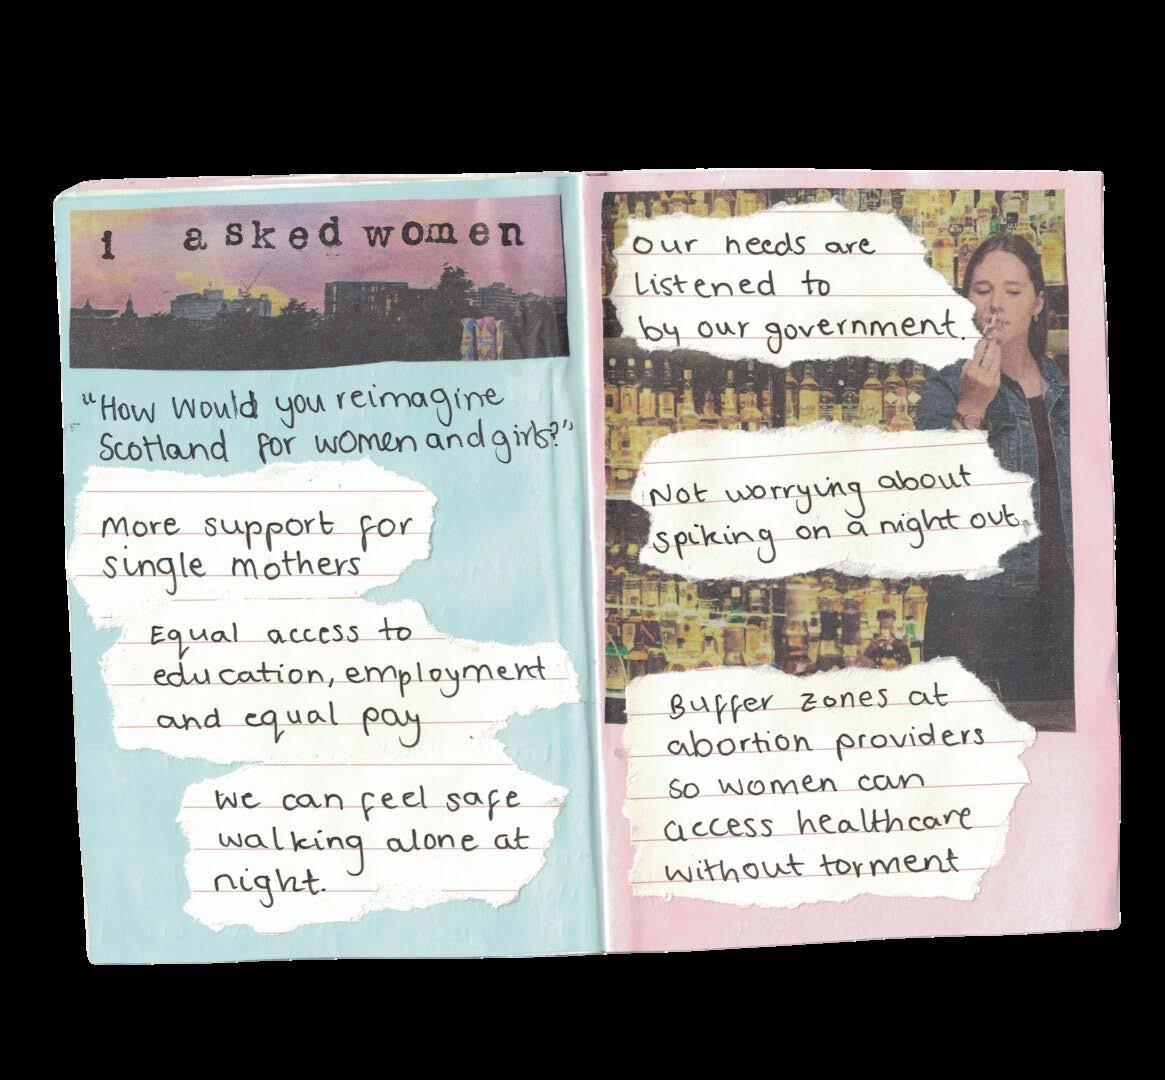 i asked women
"How would you reimagine
Scotland for women and girls?"
More support for
single mothers
Equal access to
education, employment
and equal pay
we can feel safe
walking alone at
night.
Our needs are
listened to
by our government.
Not worrying about
spiking on a night out.
Buffer zones at
abortion providers
so women can
access healthcare
without torment